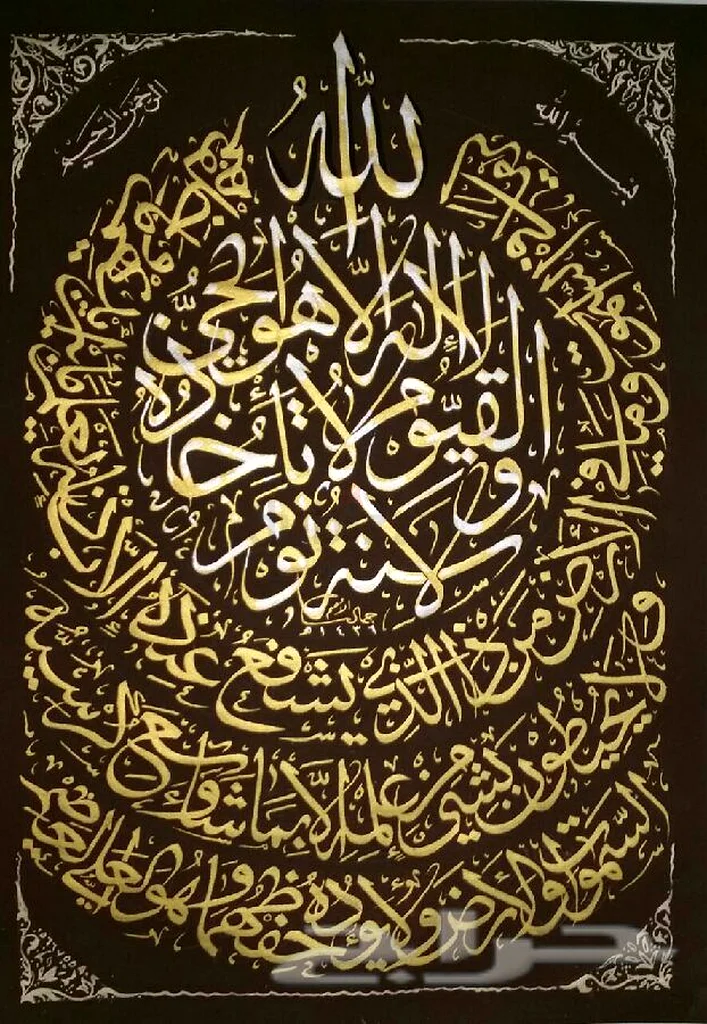 بسم الله
الرحمن الرحيم
الله
لا إله إلا هو الحي
القيوم لا تأخذه
سنة ولا نوم
له ما في السموات وما في الأرض من ذا الذي يشفع عنده إلا بإذنه يعلم ما بين أيديهم وما خلفهم
ولا يحيطون بشيء من علمه إلا بما شاء وسع كرسيه
السموات والأرض ولا يؤده حفظهما وهو العلي العظيم
١٤٣٦
حراج